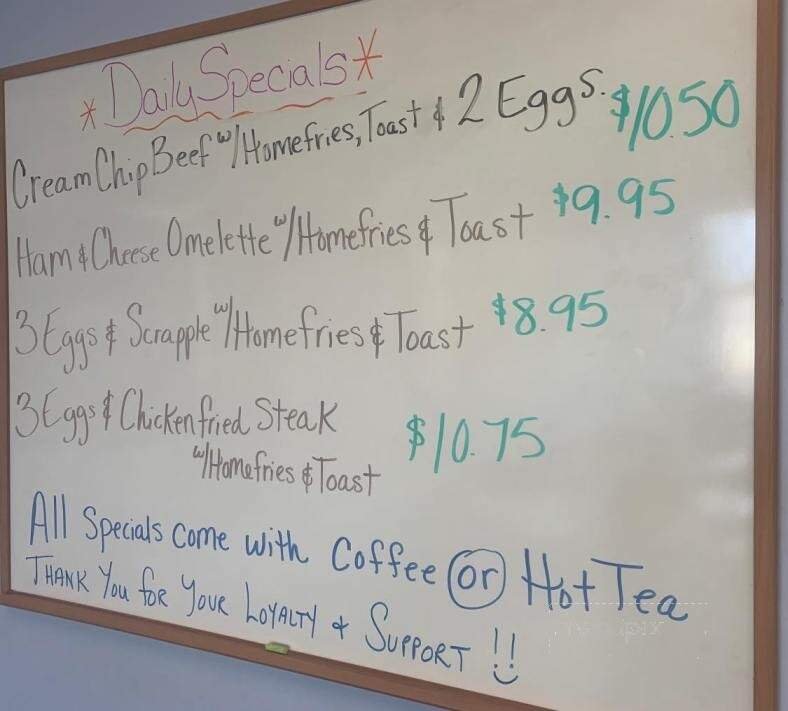 * Daily Specials *
Cream Chip Beef w/ Homefries, Toast & 2 Eggs. $10.50
Ham & Cheese Omelette w/ Homefries & Toast $9.95
3 Eggs & Scrapple w/ Homefries & Toast $8.95
3 Eggs & Chicken fried Steak $10.75
w/ Homefries & Toast
All Specials come with Coffee or Hot Tea
THANK You for Your LOYALTY & SUPPORT !!